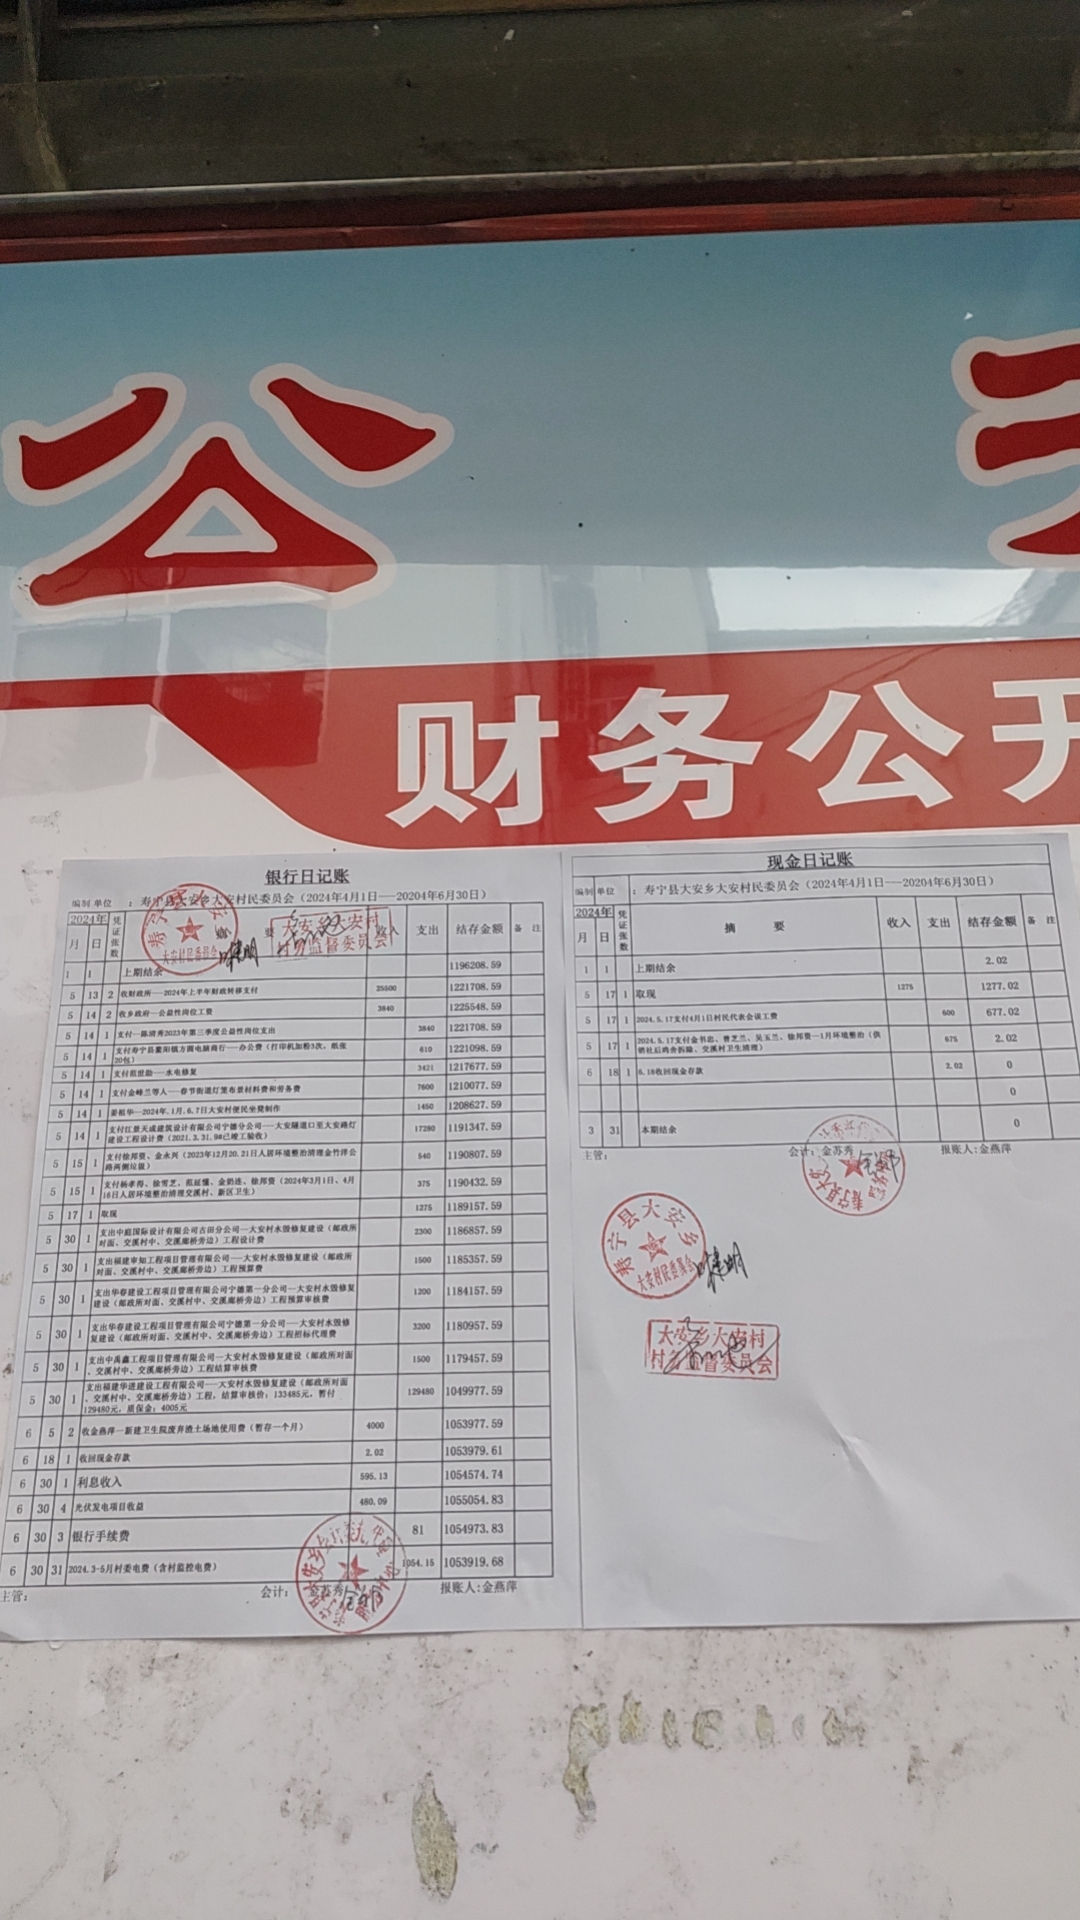 公
财务公开
银行日记账
编制单位：寿宁县大安乡大安村民委员会（2024年4月1日——20204年6月30日）
2024年 凭证张数 摘 要 收入 支出 结存金额 备 注
月 日
1 1 上期结余 1196208.59
5 13 2 收财政所——2024年上半年财政转移支付 25500 1221708.59
5 14 2 收乡政府—公益性岗位工资 3840 1225548.59
5 14 1 支付—陈清秀2023年第三季度公益性岗位支出 3840 1221708.59
5 14 1 支付寿宁县鳌阳镇方圆电脑商行——办公费（打印机加粉3次，纸张20包） 610 1221098.59
5 14 1 支付范世勋——水电修复 3421 1217677.59
5 14 1 支付金峰兰等人——春节街道灯笼布景材料费和劳务费 7600 1210077.59
5 14 1 姜祖华—2024年.1月.6.7日大安村便民坐凳制作 1450 1208627.59
5 14 1 支付江景天成建筑设计有限公司宁德分公司——大安隧道口至大安路灯建设工程设计费（2021.3.31.9#已竣工验收） 17280 1191347.59
5 15 1 支付徐邦资、金永兴（2023年12月20.21日人居环境整治清理金竹洋公路两侧垃圾） 540 1190807.59
5 15 1 支付杨孝海、徐雪芝、范延懂、金奶连、徐邦资（2024年3月1日、4月16日人居环境整治清理交溪村、新区卫生） 375 1190432.59
5 17 1 取现 1275 1189157.59
5 30 1 支出中庭国际设计有限公司古田分公司—大安村水毁修复建设（邮政所对面、交溪村中、交溪廊桥旁边）工程设计费 2300 1186857.59
5 30 1 支出福建审知工程项目管理有限公司——大安村水毁修复建设（邮政所对面、交溪村中、交溪廊桥旁边）工程预算费 1500 1185357.59
5 30 1 支出华春建设工程项目管理有限公司宁德第一分公司—大安村水毁修复建设（邮政所对面、交溪村中、交溪廊桥旁边）工程预算审核费 1200 1184157.59
5 30 1 支出华春建设工程项目管理有限公司宁德第一分公司—大安村水毁修复建设（邮政所对面、交溪村中、交溪廊桥旁边）工程招标代理费 3200 1180957.59
5 30 1 支出中禹鑫工程项目管理有限公司—大安村水毁修复建设（邮政所对面、交溪村中、交溪廊桥旁边）工程结算审核费 1500 1179457.59
5 30 1 支出福建华进建设工程有限公司——大安村水毁修复建设（邮政所对面、交溪村中、交溪廊桥旁边）工程，结算审核价：133485元，暂付129480元，质保金：4005元 129480 1049977.59
6 5 2 收金燕萍—新建卫生院废弃渣土场地使用费（暂存一个月） 4000 1053977.59
6 18 1 收回现金存款 2.02 1053979.61
6 30 1 利息收入 595.13 1054574.74
6 30 4 光伏发电项目收益 480.09 1055054.83
6 30 3 银行手续费 81 1054973.83
6 30 31 2024.3-5月村委电费（含村监控电费） 1054.15 1053919.68
主管： 会计：金苏秀 报账人:金燕萍
大安乡大安村
村务监督委员会
现金日记账
编制单位：寿宁县大安乡大安村民委员会（2024年4月1日——20204年6月30日）
2024年 凭证张数 摘 要 收入 支出 结存金额 备 注
月 日
1 1 上期结余 2.02
5 17 1 取现 1275 1277.02
5 17 1 2024.5.17支付4月1日村民代表会误工费 600 677.02
5 17 1 2024.5.17支付金书忠、曾芝兰、吴玉兰、徐邦资—1月环境整治（供销社后鸡舍拆除、交溪村卫生清理） 675 2.02
6 18 1 6.18收回现金存款 2.02 0
0
3 31 本期结余 0
主管： 会计：金苏秀 报账人:金燕萍
寿宁县大安乡
大安村民委员会
大安乡大安村
村务监督委员会